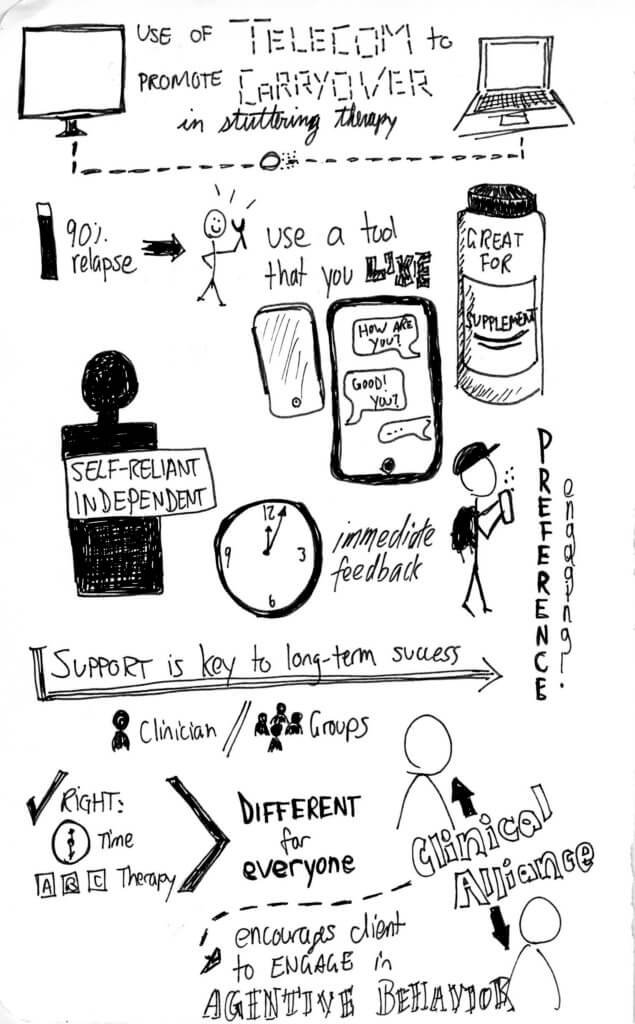 USE OF TELECOM to
PROMOTE CARRYOVER
in stuttering therapy
90% relapse
use a tool
that you LIKE
GREAT
FOR
SUPPLEMENT
HOW ARE
YOU?
GOOD!
YOU?
...
SELF-RELIANT
INDEPENDENT
12
3
6
9
immediate
feedback
PREFERENCE
engaging!
SUPPORT is key to long-term success
Clinician // Groups
RIGHT:
Time
A B C Therapy
DIFFERENT
for
everyone
Clinical
Alliance
encourages client
to ENGAGE in
AGENTIVE BEHAVIOR